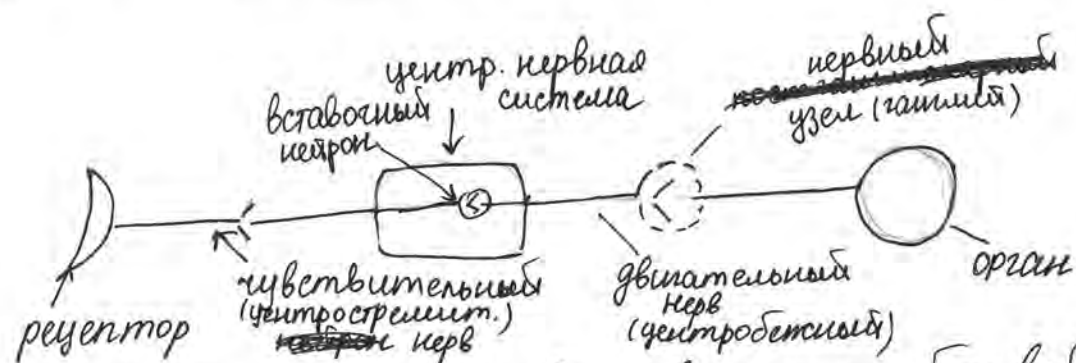 центр. нервная
система
вставочный
нейрон
нервный
узел (ганглий)
рецептор
чувствительный
(центростремит.)
нерв
двигательный
нерв
(центробежный)
орган